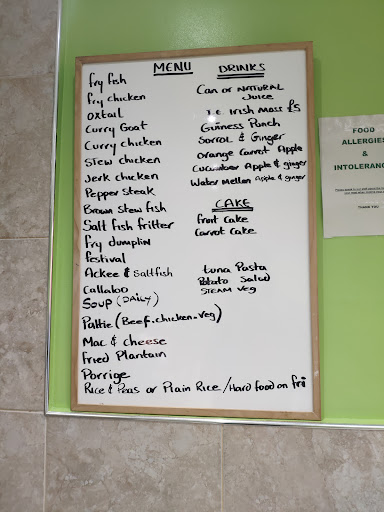 MENU
fry fish
fry chicken
oxtail
Curry Goat
Curry chicken
Stew chicken
Jerk chicken
Pepper steak
Brown Stew fish
Salt fish fritter
fry dumplin
festival
Ackee & Saltfish
Callaloo
Soup (DAILY)
Pattie (Beef.chicken.veg)
Mac & cheese
Fried Plantain
Porrige
Rice & Peas or Plain Rice /Hard food on fri
DRINKS
Can or NATURAL
Juice
I.E Irish Moss £5
Guiness Punch
Sorrol & Ginger
Orange Carrot Apple
Cucumber Apple & ginger
Water Mellon Apple & ginger
CAKE
fruit Cake
Carrot Cake
tuna Pasta
Potato Salad
STEAM Veg
FOOD
ALLERGIES
&
INTOLERANC
THANK YOU